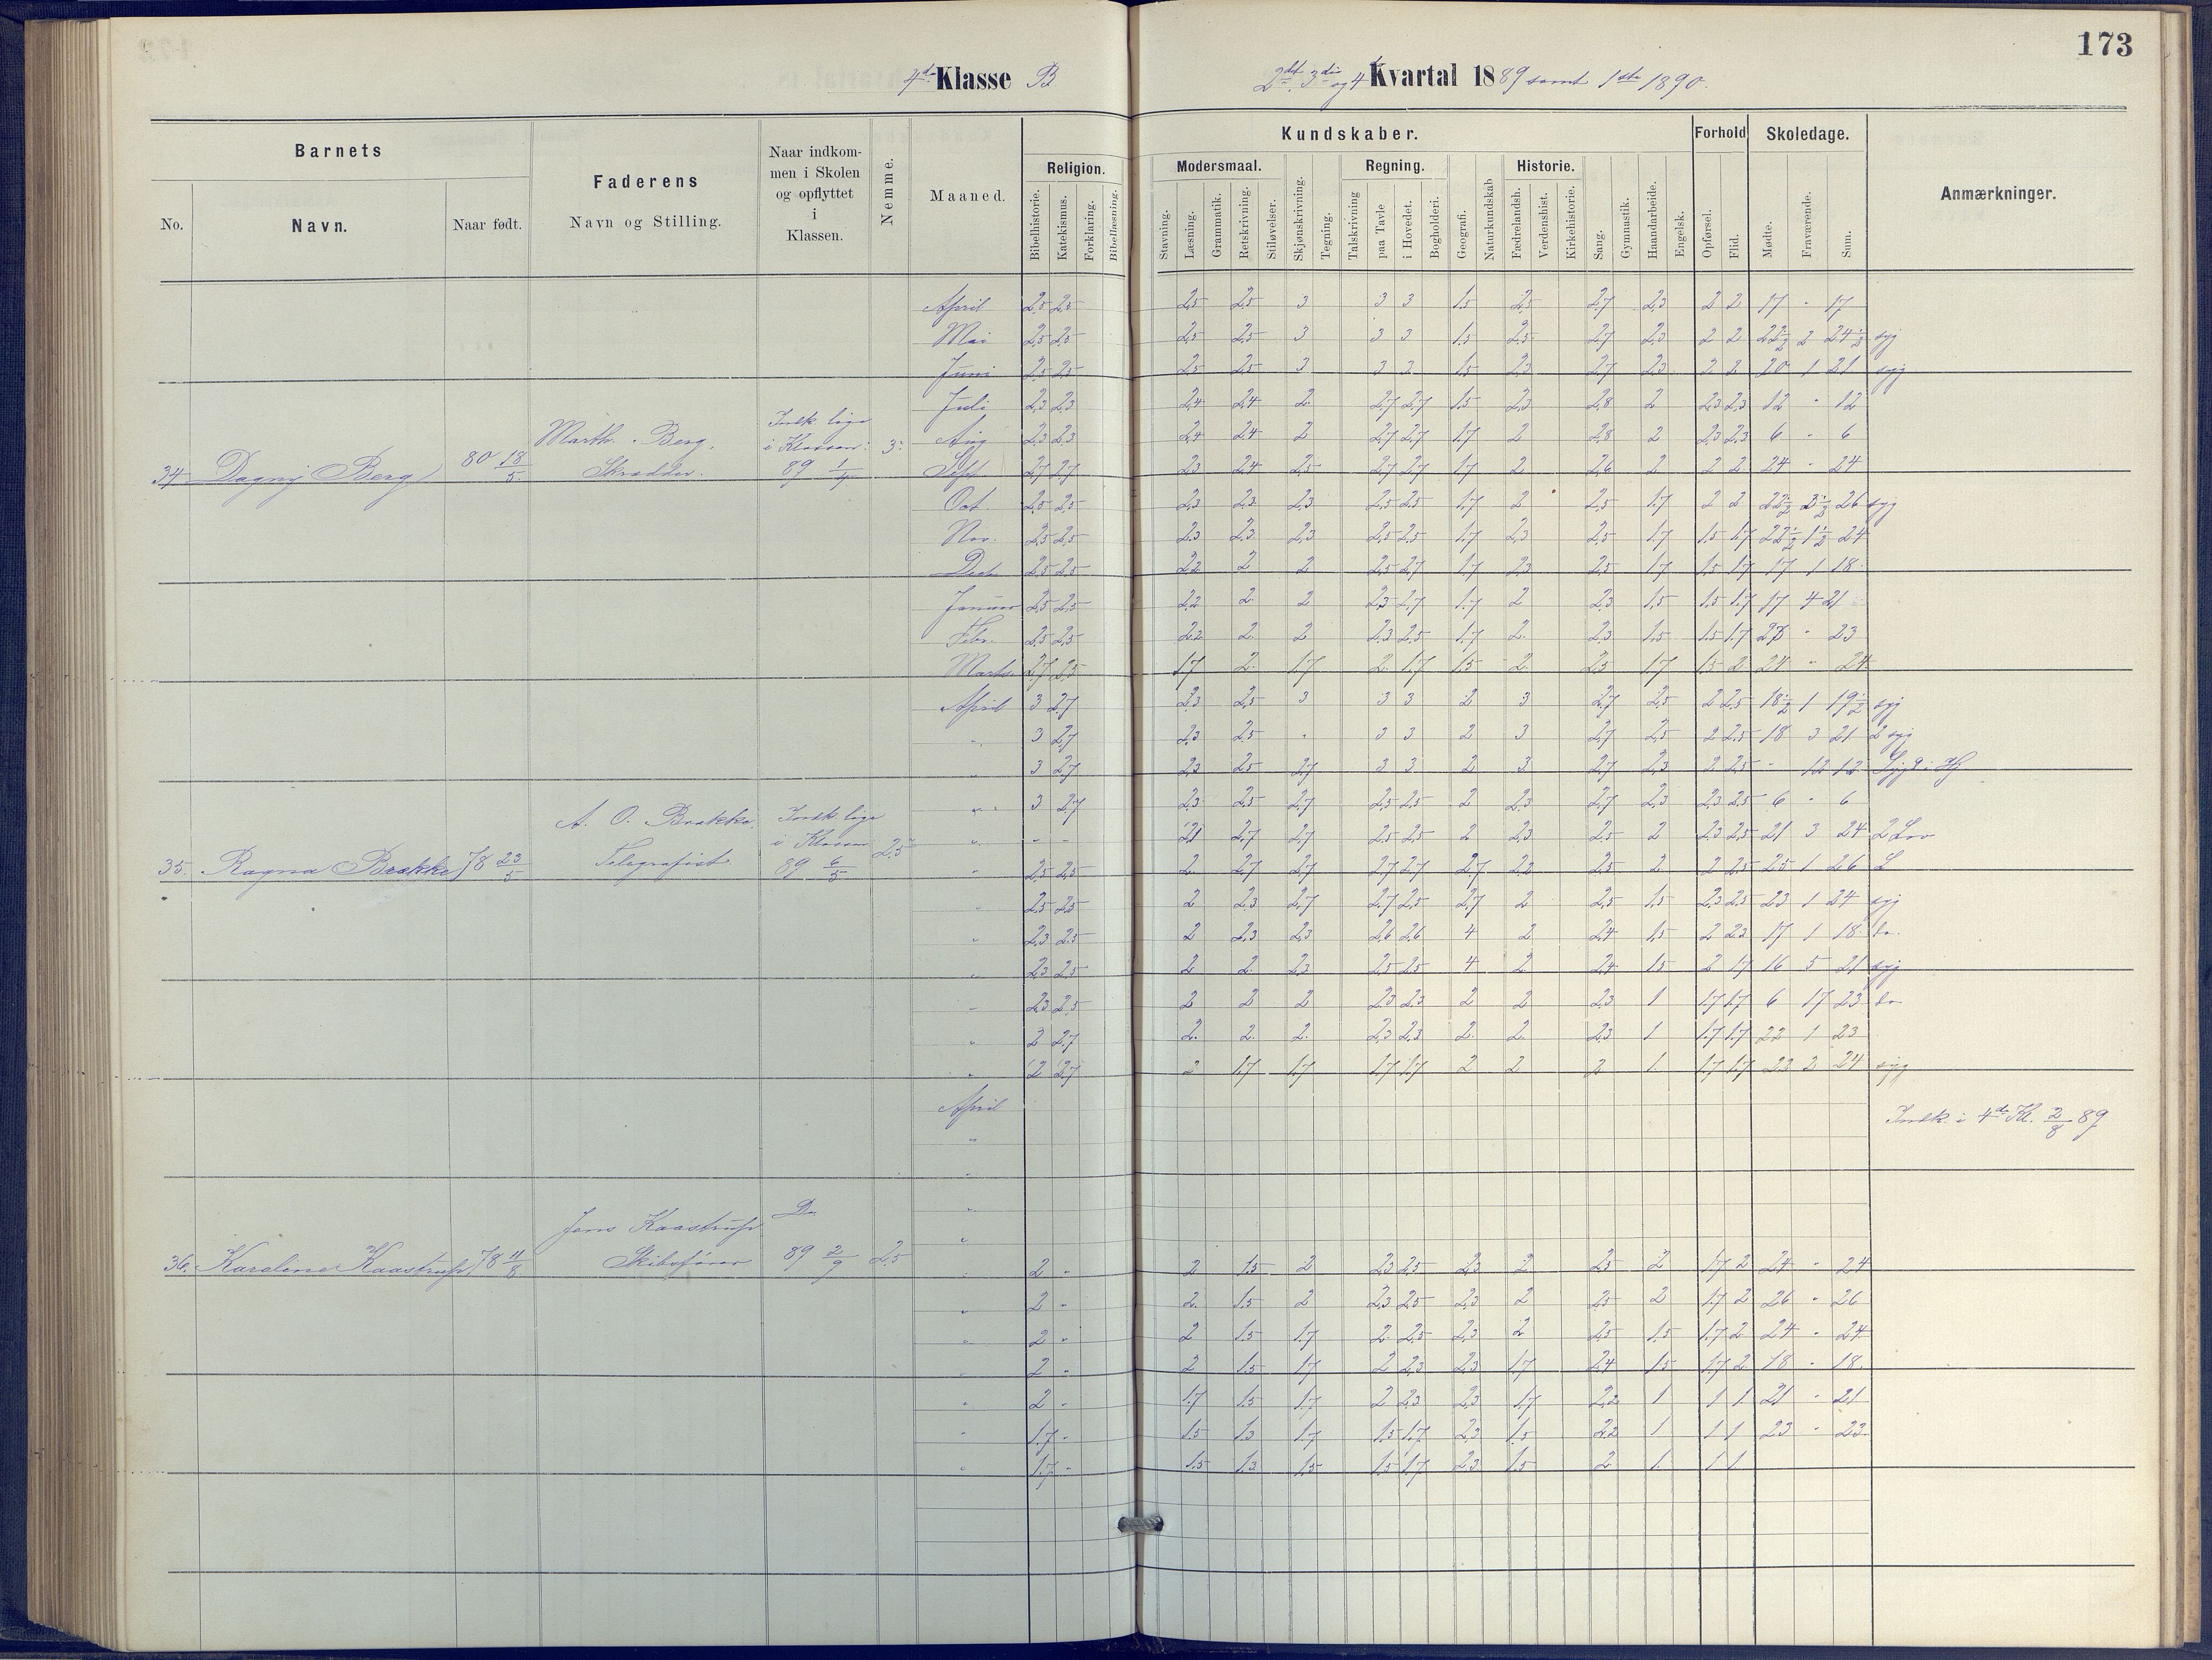 173
4de Klasse B
2det, 3die og 4 Kvartal 1889 samt 1ste 1890.
Barnets
No.
Navn.
Naar født.
Faderens
Navn og Stilling.
Naar indkom-
men i Skolen
og opflyttet
i
Klassen.
Nemme.
Maaned.
Kundskaber.
Religion.
Bibelhistorie.
Katekismus.
Forklaring.
Bibellæsning.
Modersmaal.
Stavning.
Læsning.
Grammatik.
Retskrivning.
Stiløvelser.
Skjønskrivning.
Tegning.
Regning.
Talskrivning
paa Tavle
i Hovedet.
Bogholderi.
Geografi.
Naturkundskab
Historie.
Fædrelandsh.
Verdenshist.
Kirkehistorie.
Sang.
Gymnastik.
Haandarbeide.
Engelsk.
Forhold
Opførsel.
Flid.
Skoledage.
Mødte.
Fraværende.
Sum.
Anmærkninger.
34 Dagny Berg 80 18/5
Marth. Berg.
Skrædder.
Indk. lige
i Klassen
89 1/4
3
April 2,5 2,5 2,5 2,5 3 3 3 1,5 2,5 2,7 2,3 2 2 17 - 17
Mai 2,5 2,5 2,5 2,5 3 3 3 1,5 2,5 2,7 2,3 2 2 22½ 2 24½ syg
Juni 2,5 2,5 2,5 2,5 3 3 3 1,5 2,3 2,7 2,3 2 2 20 1 21 syg
Juli 2,3 2,3 2,4 2,4 2 2,7 2,7 1,5 2,3 2,8 2 2,3 2,3 12 - 12
Aug 2,3 2,3 2,4 2,4 2 2,7 2,7 1,7 2 2,8 2 2,3 2,3 6 - 6
Sept. 2,7 2,7 2,3 2,4 2,5 2,7 2,7 1,7 2 2,6 2 2 2 24 - 24
Oct. 2,5 2,5 2,3 2,3 2,3 2,5 2,5 1,7 2 2,5 1,7 2 2 22½ 3½ 26 syg
Nov. 2,5 2,5 2,3 2,3 2,3 2,5 2,5 1,7 2,3 2,5 1,7 1,5 1,7 22½ 1½ 24
Dech 2,5 2,5 2,2 2 2 2,5 2,7 1,7 2,3 2,5 1,7 1,5 1,7 17 1 18
Januar 2,5 2,5 2,2 2 2 2,3 2,7 1,7 2 2,3 1,5 1,5 1,7 17 4 21
Febr. 2,5 2,5 2,2 2 2 2,3 2,5 1,7 2 2,3 1,5 1,5 1,7 23 - 23
Marts. 2,7 2,5 1,7 2 1,7 2 1,7 1,5 2 2,5 1,7 1,5 2 24 - 24
35. Ragna Brække 78 23/5
A. O. Brække.
Telegrafist.
Indk. lige
i Klassen
89 6/5
2,5
April 3 2,7 2,3 2,5 3 3 3 2 3 2,7 2,5 2 2,5 18½ 1 19½ syg
" 3 2,7 2,3 2,5 - 3 3 2 3 2,7 2,5 2 2,5 18 3 21 2 syg
" 3 2,7 2,3 2,5 2,7 3 3 2 3 2,7 2,3 2 2,5 - 12 12
" 3 2,7 2,3 2,5 2,7 2,5 2,5 2 2,3 2,7 2,3 2,3 2,5 6 - 6
" - - 2,1 2,7 2,7 2,5 2,5 2 2,3 2,5 2 2,3 2,5 21 3 24 2 Lov
" 2,5 2,5 2 2,7 2,7 2,7 2,7 2,7 2,2 2,5 2 2 2,5 25 1 26 L
" 2,5 2,5 2 2,3 2,7 2,7 2,5 2,7 2 2,5 1,5 2,3 2,5 23 1 24 syg
" 2,3 2,5 2 2,3 2,3 2,6 2,6 4 2 2,4 1,5 2 2,3 17 1 18 do
" 2,3 2,5 2 2 2,3 2,5 2,5 4 2 2,4 1,5 2 1,7 16 5 21 syg
" 2,3 2,5 2 2 2 2,3 2,3 2 2 2,3 1 1,7 1,7 6 17 23 do
" 2 2,7 2 2 2 2,3 2,3 2 2 2,3 1 1,7 1,7 22 1 23
" 2 2,7 2 1,7 1,7 1,7 1,7 2 2 2 1 1,7 1,7 22 2 24 syg
36. Karoline Kaastrup 78 11/8
Jens Kaastrup
Skibsfører
Do
89 2/9
2,5
April
Indk. i 4de Kl. 2/8 89
"
"
"
"
" 2 - 2 1,5 2 2,3 2,5 2,3 2 2,5 2 1,7 2 24 - 24
" 2 - 2 1,5 2 2,3 2,5 2,3 2 2,5 2 1,7 2 26 - 26
" 2 - 2 1,5 1,7 2 2,5 2,3 2 2,5 1,5 1,7 2 24 - 24
" 2 - 2 1,5 1,7 2 2,3 2,3 1,7 2,4 1,5 1,7 2 18 - 18
" 2 - 1,7 1,5 1,7 2 2,3 2,3 1,7 2,2 1 1 1 21 - 21
" 1,7 - 1,5 1,3 1,7 1,5 1,7 2,3 1,5 2,2 1 1 1 23 - 23
" 1,7 - 1,5 1,3 1,5 1,5 1,7 2,3 1,5 2 1 1 1